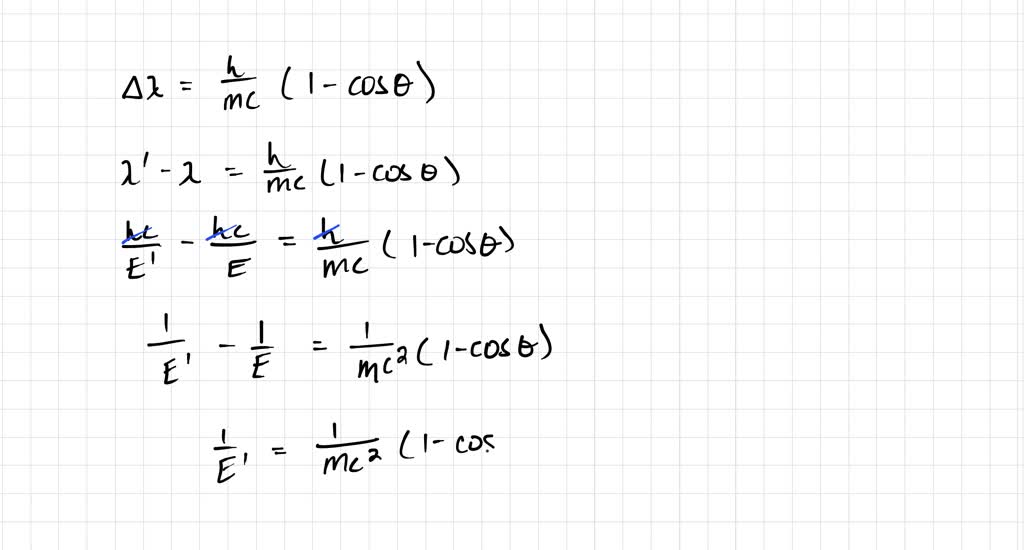 Δλ = h/mc (1 - cosθ)
λ' - λ = h/mc (1 - cos θ)
hc/E' - hc/E = h/mc (1 - cosθ)
1/E' - 1/E = 1/mc² (1 - cosθ)
1/E' = 1/mc² (1 - cos